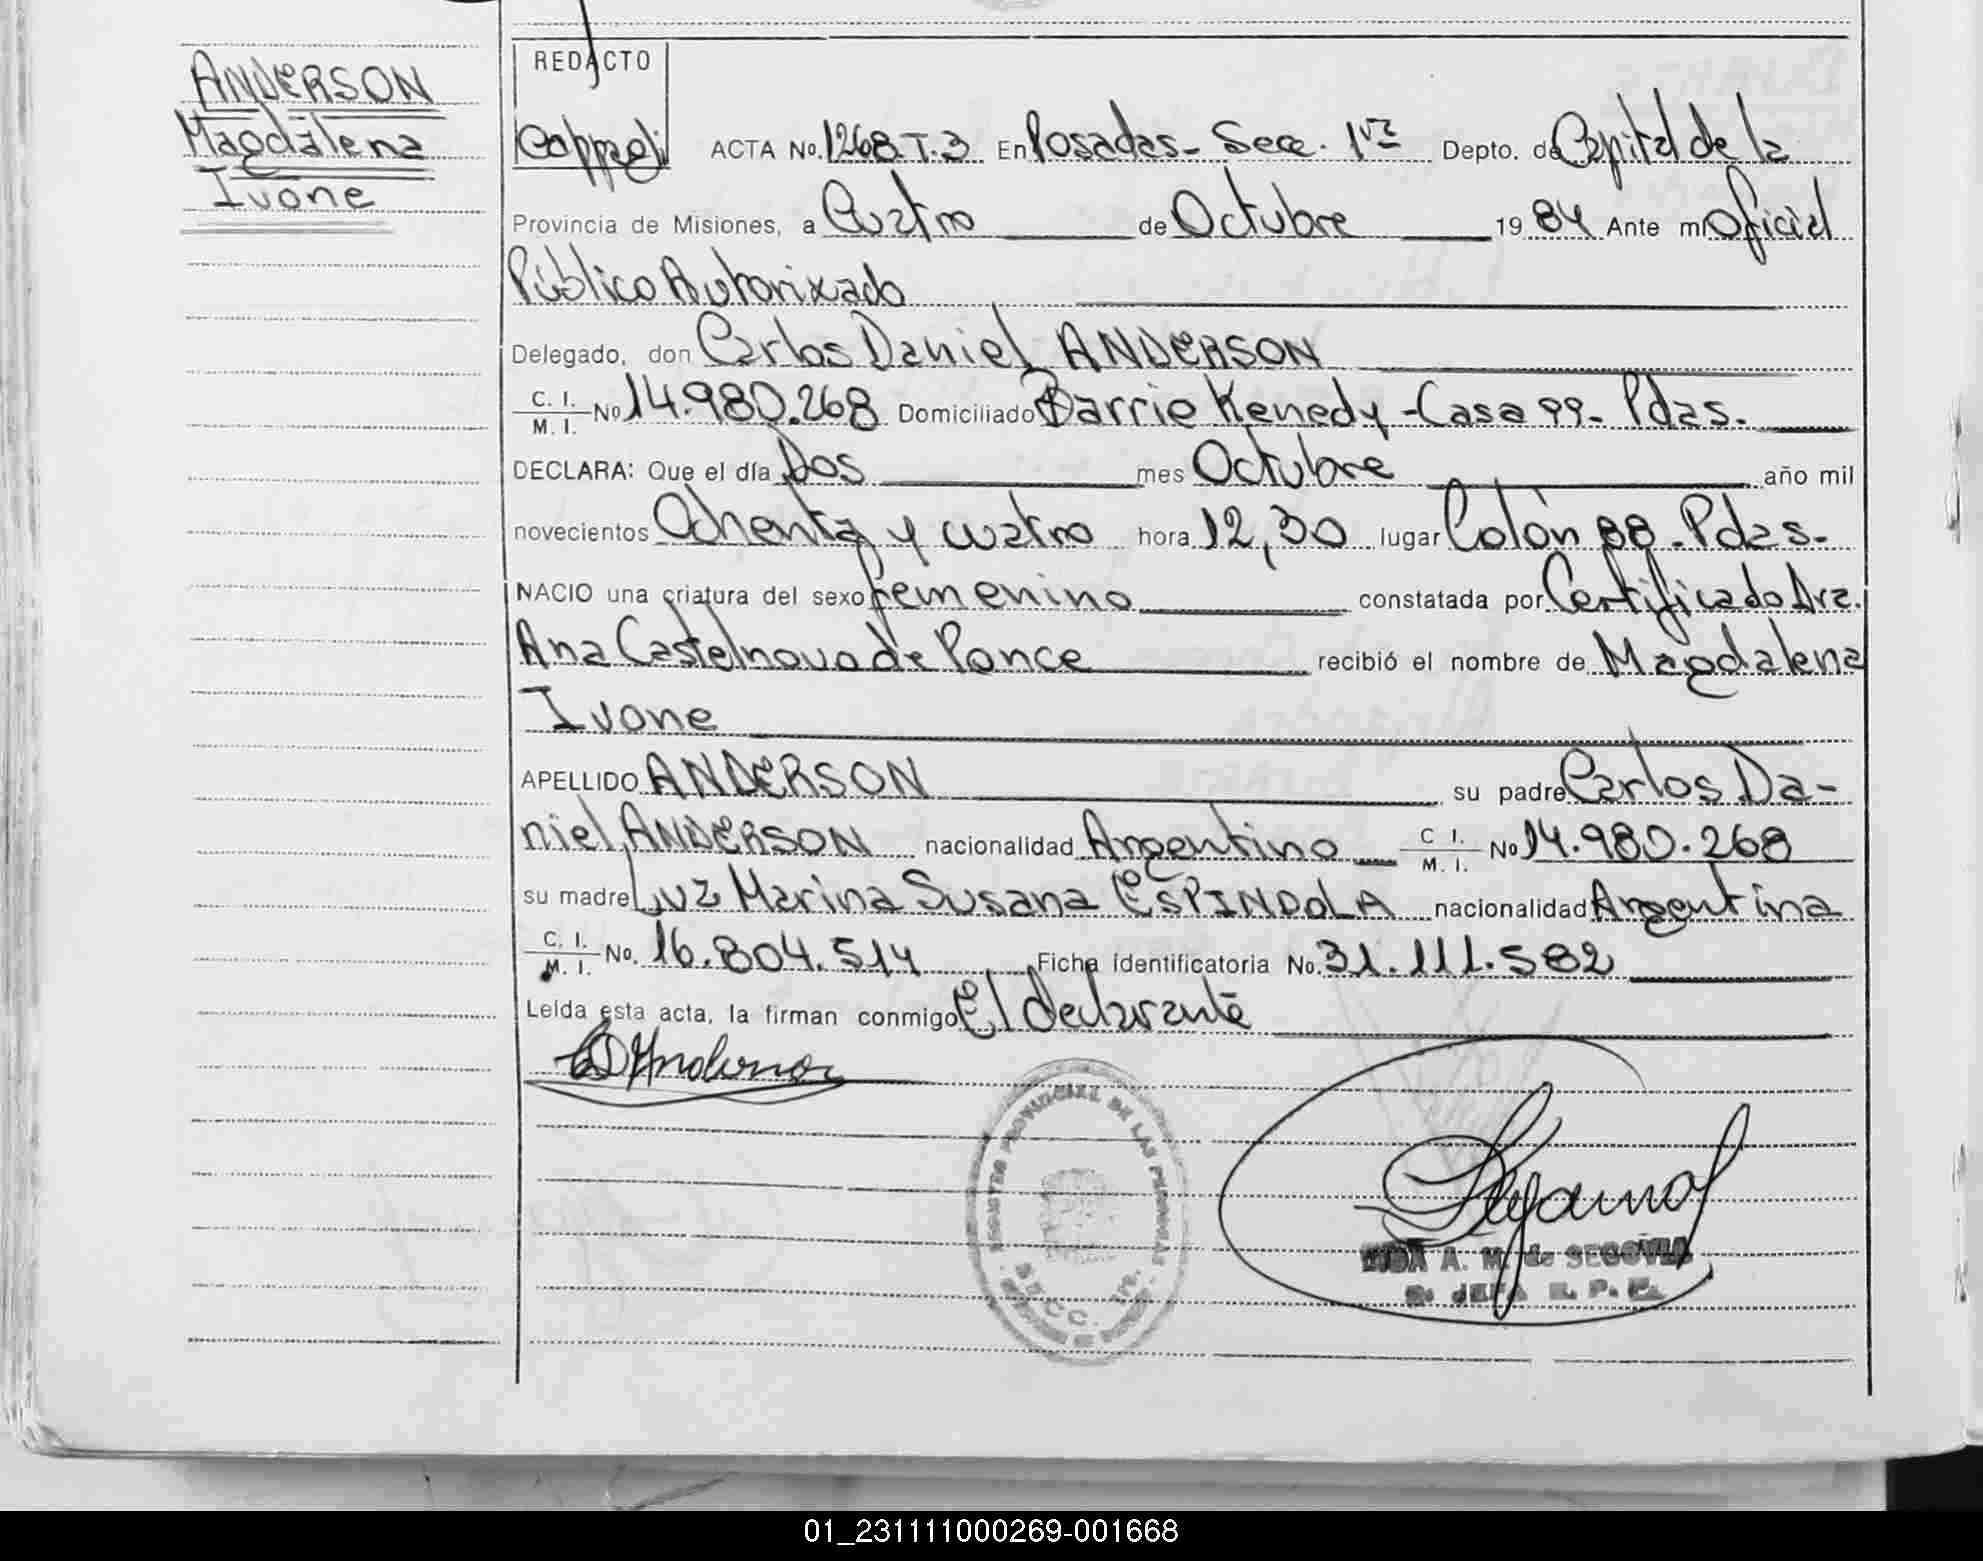 ANDERSON
Magdalena
Ivone
REDACTO
ACTA No. 1268.T.3 En Posadas - Secc. 1ra Depto. de Capital de la
Provincia de Misiones, a Cuatro de Octubre 1984 Ante mi Oficial
Público Autorixado
Delegado, don Carlos Daniel ANDERSON
C. I.
M. I. No 14.980.268 Domiciliado Barrio Kenedy - Casa 99 - Pdas.
DECLARA: Que el día Dos mes Octubre año mil
novecientos Ochenta y cuatro hora 12,30 lugar Colón 88 - Pdas-
NACIO una criatura del sexo femenino constatada por Certificado Dra.
Ana Castelnovo de Ponce recibió el nombre de Magdalena
Ivone
APELLIDO ANDERSON su padre Carlos Da-
niel ANDERSON nacionalidad Argentino C I. M. I. No 14.980.268
su madre Luz Marina Susana ESPINDOLA nacionalidad Argentina
C. I.
M. I. No. 16.804.514 Ficha identificatoria No. 31.111.582
Leída esta acta, la firman conmigo El declarante
REGISTRO PROVINCIAL DE LAS PERSONAS
SECC. 1ra.
A. M. de SEGOVIA
JEFA R. P. P.
01_231111000269-001668